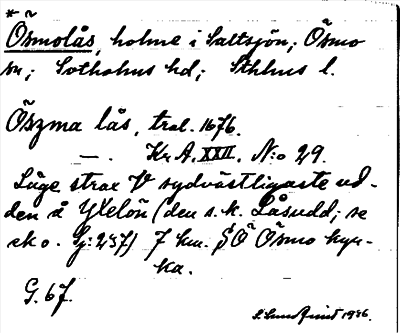 * ~
Ösmolås, holme i Saltsjön; Ösmo
sn; Sotholms hd; Sthlms l.
Öszma lås, tral. 1676.
— . Kr A. XXII. N:o 29.
Låge strax V sydvästligaste ud-
den å Yxelön (den s. k. Låsudd; se
ek o. G: 237) 7 km. SÖ Ösmo kyr-
ka.
G. 67.
1936.